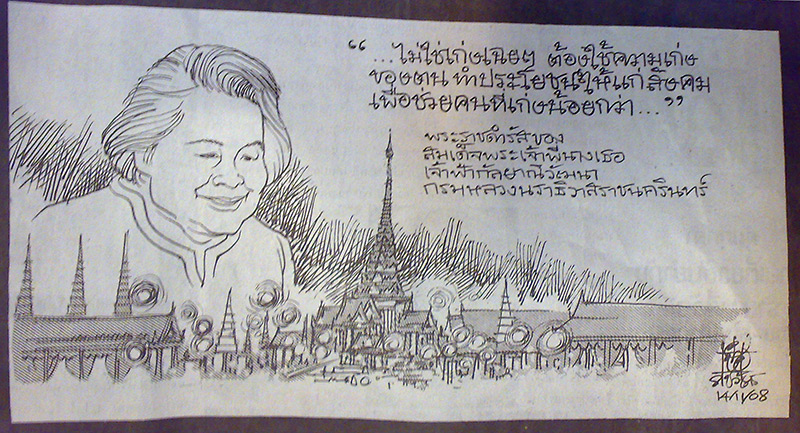 “...ไม่ใช่เก่งเฉยๆ ต้องใช้ความเก่ง
ของตน ทำประโยชน์ให้แก่สังคม
เพื่อช่วยคนที่เก่งน้อยกว่า...”
พระราชดำรัสของ
สมเด็จพระเจ้าพี่นางเธอ
เจ้าฟ้ากัลยาณิวัฒนา
กรมหลวงนราธิวาสราชนครินทร์
14/11/08